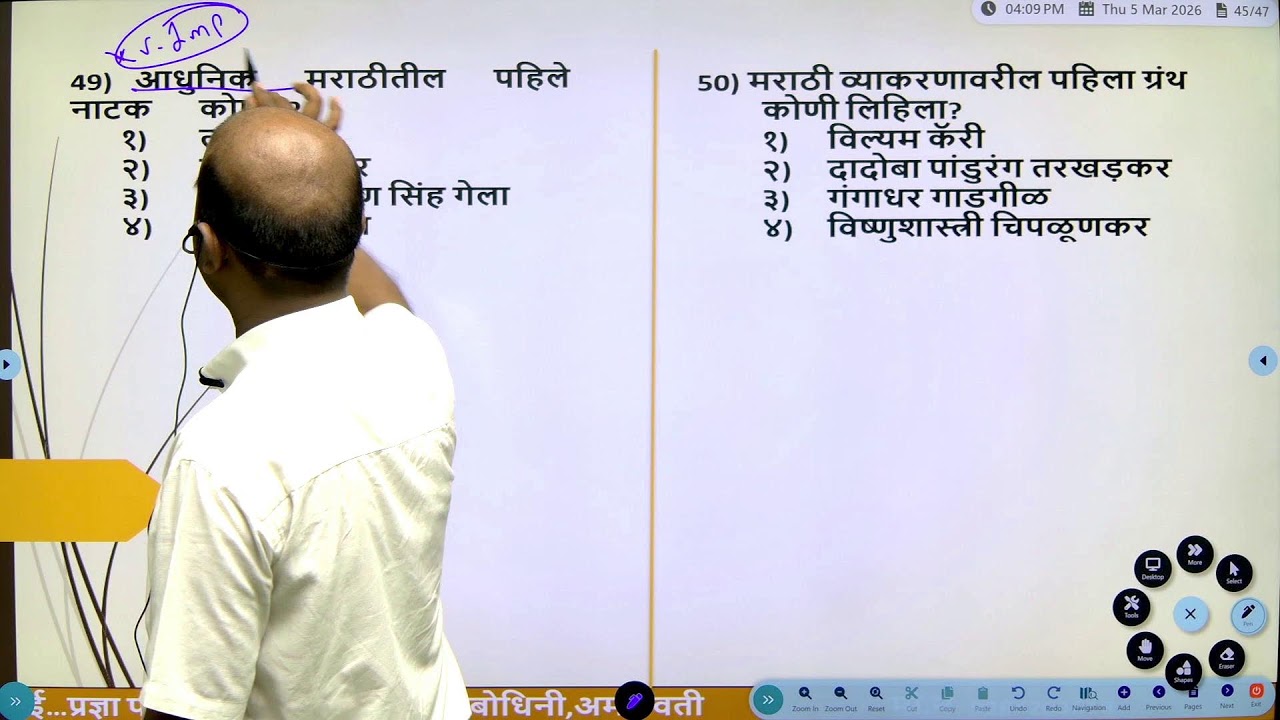 04:09 PM Thu 5 Mar 2026 45/47
v. Imp
49) आधुनिक मराठीतील पहिले
नाटक
१)
२)
३) सिंह गेला
४)
50) मराठी व्याकरणावरील पहिला ग्रंथ
कोणी लिहिला?
१) विल्यम कॅरी
२) दादोबा पांडुरंग तरखड़कर
३) गंगाधर गाडगीळ
४) विष्णुशास्त्री चिपळूणकर
More
Desktop Select
Tools Pen
Move Eraser
Shapes
Zoom In Zoom Out Reset Cut Copy Paste Undo Redo Navigation Add Previous Pages Next Exit